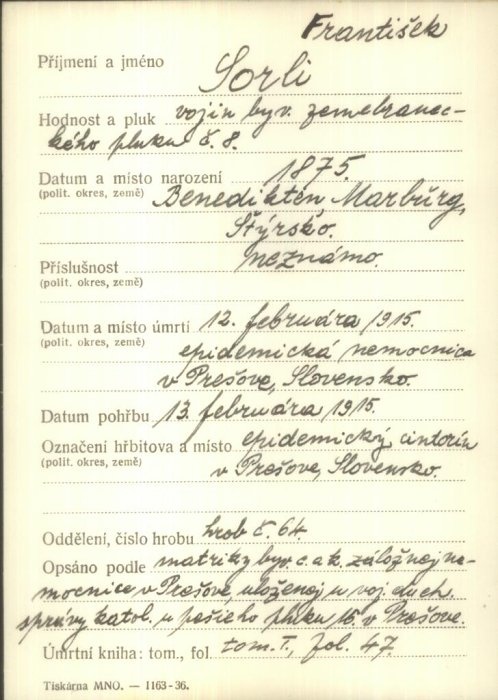 František
Příjmení a jméno Sorli
Hodnost a pluk vojin byv. zemebranec-
kého pluku č. 8.
Datum a místo narození 1875.
(polit. okres, země) Benedikten, Marburg,
Štýrsko.
Příslušnost neznámo.
(polit. okres, země)
Datum a místo úmrtí 12. februára 1915.
(polit. okres, země) epidemická nemocnica
v Prešove, Slovensko.
Datum pohřbu 13. februára 1915.
Označení hřbitova a místo epidemický cintorín
(polit. okres, země) v Prešove, Slovensko.
Oddělení, číslo hrobu hrob č. 64.
Opsáno podle matriky byv. c. a k. záložnej ne-
mocnice v Prešove, uloženej u voj. duch.
správy katol. u pešieho pluku 15. v Prešove.
Úmrtní kniha: tom., fol. tom. I., fol. 47.
Tiskárna MNO. — 1163-36.